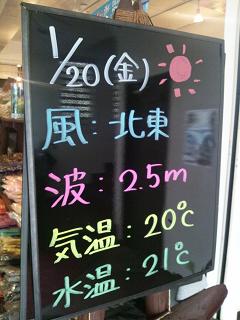 1/20(金)
風：北東
波：2.5m
気温：20℃
水温：21℃